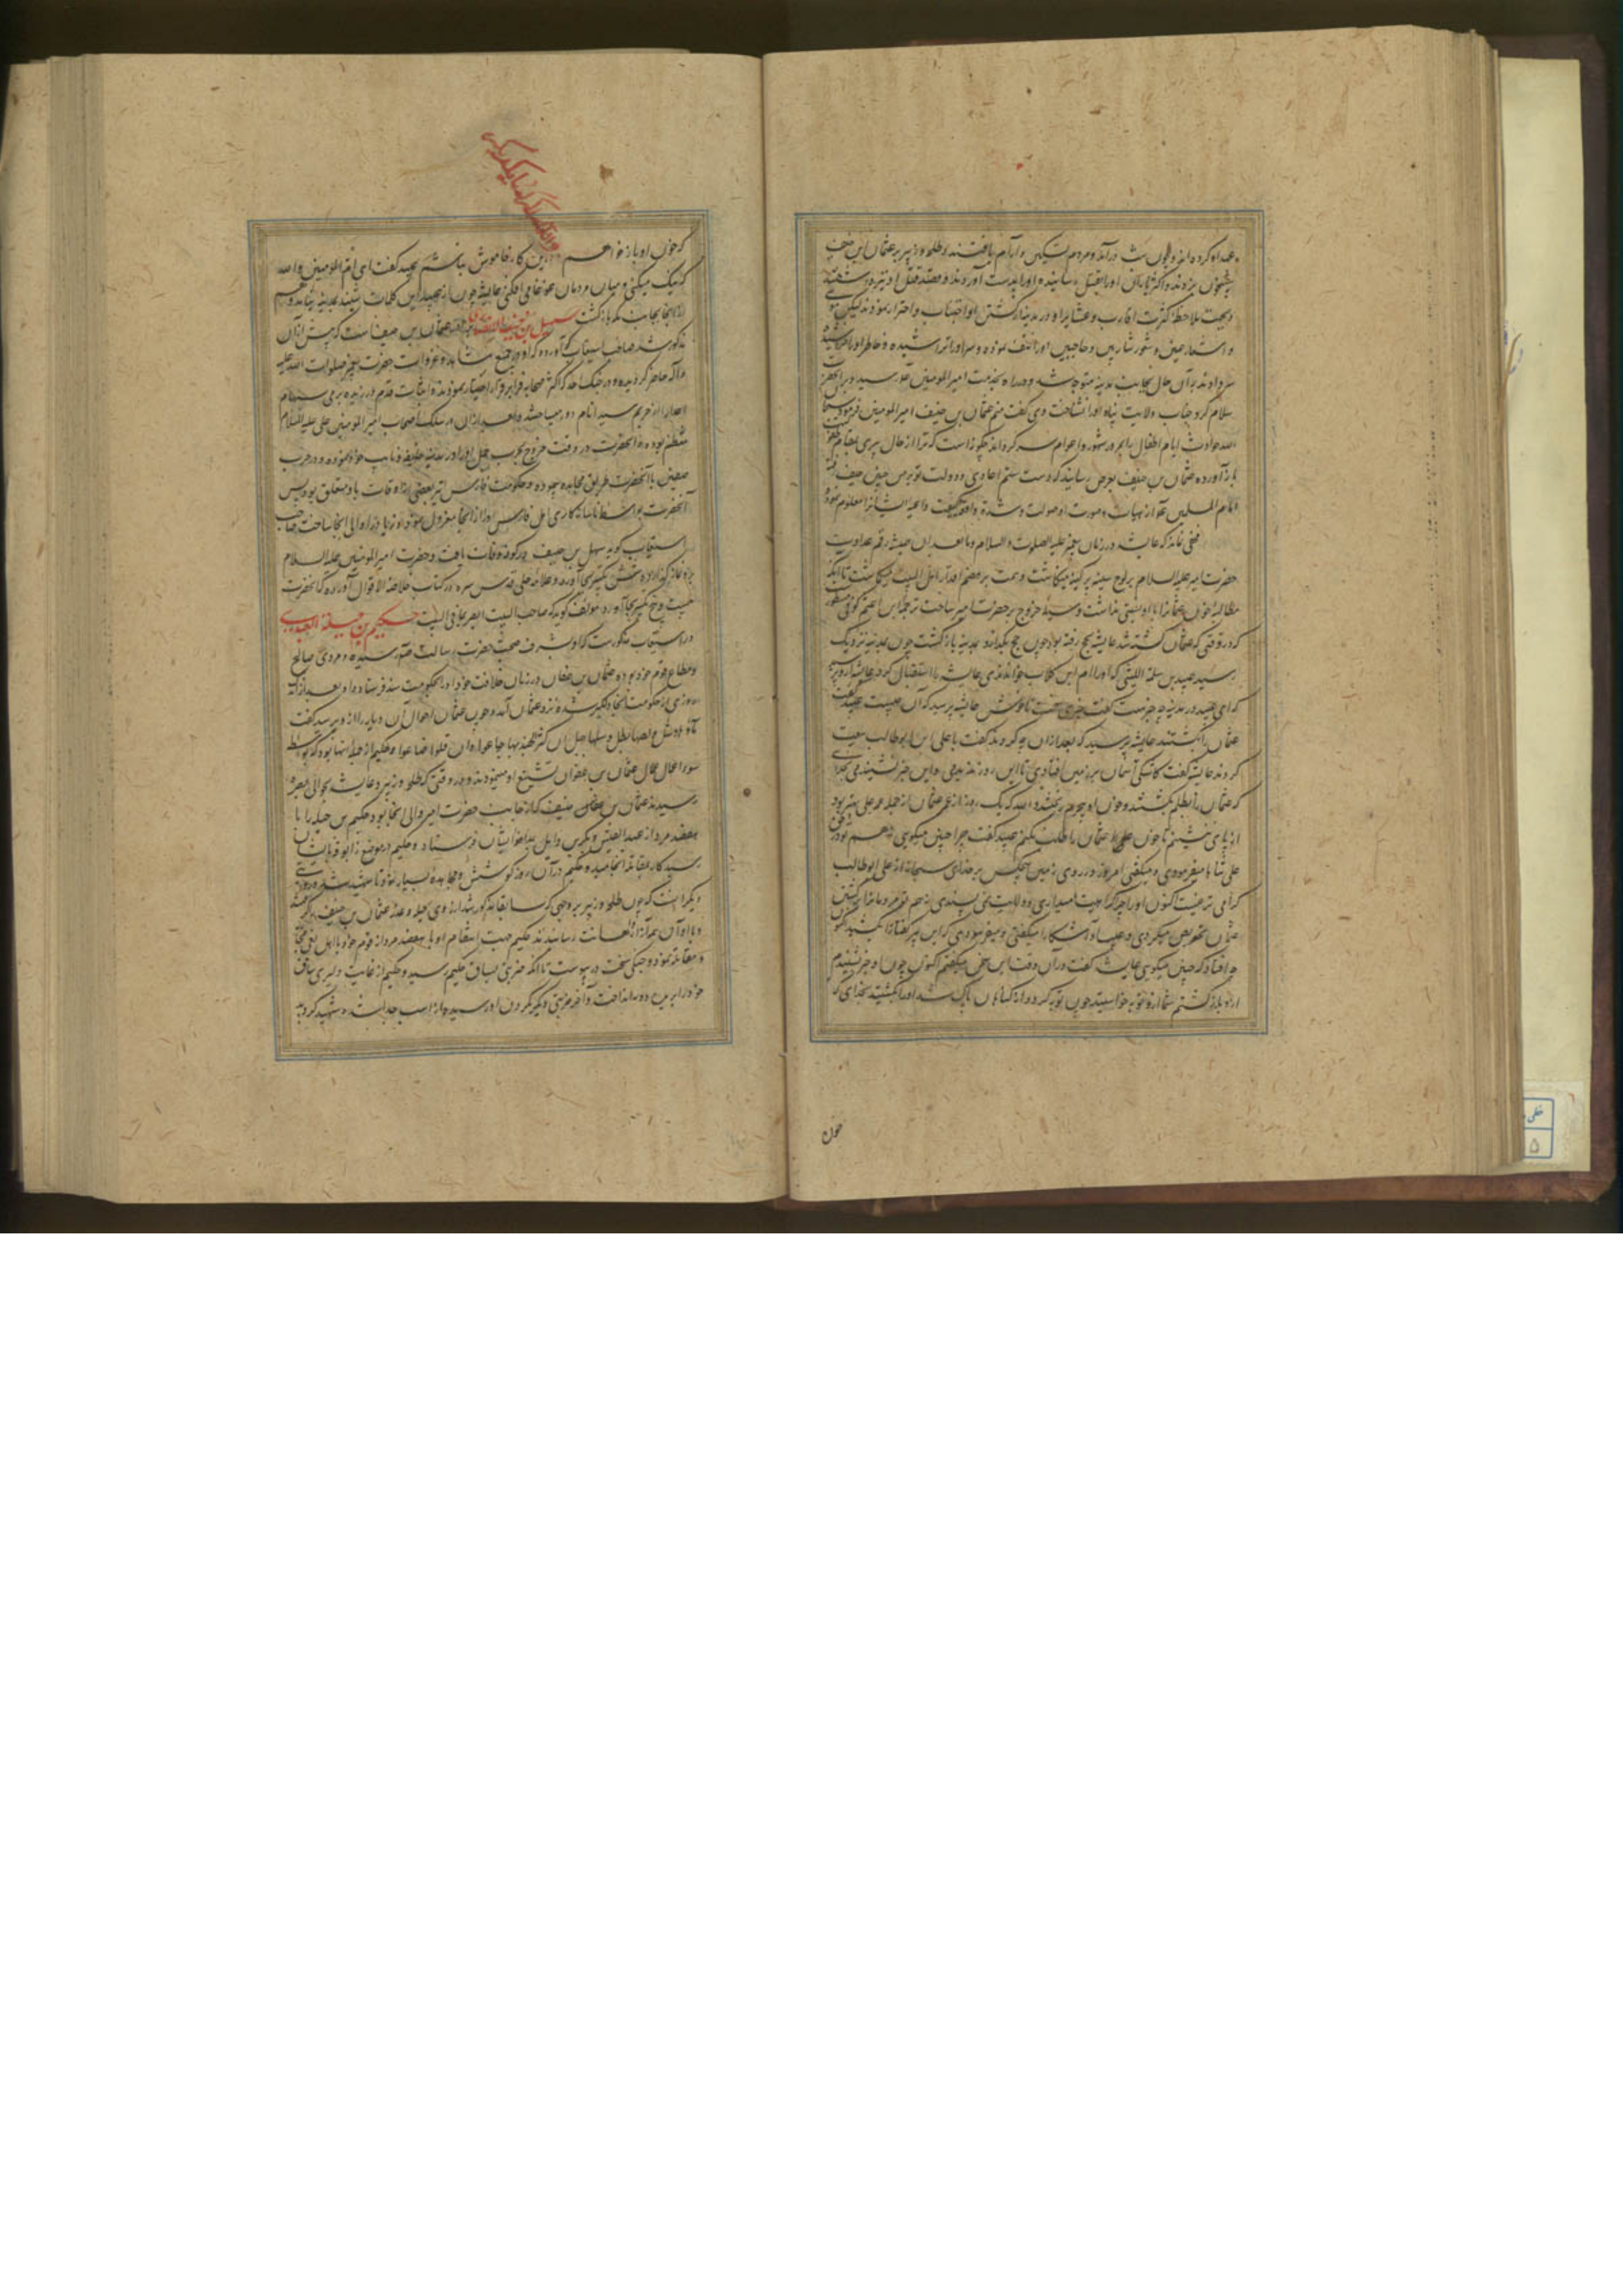 عهد او کرده اند و چون شب درآمد و مردم تسکین و آرام یافتند و طلحه و زبیر بر عثمان ابن حنیف
شبیخون بردند و اکثر یاران او را بقتل رسانیده او را بدست آوردند و قصد قتل او نیز داشتند
و بجهت ملاحظه کثرت اقارب و عشایر او در مدینه از کشتن او اجتناب و احتراز نمودند لیکن موی
و اشعار عینین و شعور شاربین و حاجبین او را نتف نموده و سر او را تراشیده و خاطر او را
سر دادند بر آن حال بجانب مدینه متوجه شد و در راه بخدمت امیرالمومنین علی رسید و بر آنحضرت
سلام کرد جناب ولایت پناه او را نشناخت وی گفت منم عثمان بن حنیف امیرالمومنین فرمود
حوادث ایام اطفال را پیر و شهور و اعوام چگونه است که ترا از حال پیری بمقام
باز آورده عثمان بن حنیف بعرض رسانید که دست ستم اعادی دو دولت تو بر من چنین حیف
امام المسلمین
مخفی نماند که عایشه در زمان پیغمبر علیه الصلوة و السلام و بعد از آن همیشه رقم عداوت
حضرت امیر علیه السلام بر لوح سینه پر کینه مینگاشت و همت بر هضم اقدار اهل البیت میگماشت تا آنکه
مطالبه خون عثمان را وسیله خروج بر حضرت امیر ساخت ترجمه ابن اعثم کوفی مسطور
که در وقتی که عثمان کشته شد عایشه بحج رفته بود چون حج بگذارد بمدینه بازگشت چون بمدینه نزدیک
رسید عبید بن سلمة اللیثی که او را ام ابن کلاب خوانندی عایشه را استقبال کرد عایشه از او پرسید
که ای عبید در مدینه چه خبرست گفت خبری سخت ناخوش عایشه پرسید که آن چیست عبید گفت
عثمان را بکشتند عایشه پرسید که بعد از آن چه کردند گفت با علی ابن ابو طالب بیعت
کردند عایشه گفت کاشکی آسمان بر زمین افتادی تا این روز ندیدمی و این خبر نشنیدمی بخدای
که عثمان را بظلم بکشتند و خون او بیجرم ریختند والله که یک روز از عمر عثمان از جمله عمر علی بهتر بود
از پای ننشینم تا خون عثمان را طلب نکنم عبید گفت چرا چنین میگویی نه هم تو در حق
علی ثناها میفرمودی و میگفتی امروز در روی زمین هیچکس بر خدای سبحانه از علی ابو طالب
گرامی تر نیست اکنون او را چرا کراهیت میداری و ولایت نمی پسندی نه هم تو مردمان را بکشتن
عثمان تحریص میکردی و عیب او آشکارا میگفتی و میفرمودی که این پیر کفتار را بکشید
چه افتاد که چنین میگویی عایشه گفت در آن وقت این سخن میگفتم اکنون چون او خبر شنیدم
ازو بازگشتم شما ازو توبه خواستید چون توبه کرد و از گناهان پاک شد او را بکشتید بخدای که
خون
والله که خون او باز خواهم
که خون او باز خواهم این کار خاموش نباشم عبید گفت ای ام المومنین والله
که نیک نمیکنی و میان مردمان غوغا می افکنی عایشه چون از عبید این کلمات بشنید بمدینه نیامد و هم
از آنجا بجانب مکه بازگشت سهل بن حنیف الانصاری برادر عثمان ابن حنیف است که پیش از آن
مذکور شد صاحب استیعاب آورده که او در جمیع مشاهد و غزوات حضرت پیغمبر صلوات الله علیه
و آله حاضر گردیده و در جنگ احد که اکثر صحابه فرار بر قرار اختیار نمودند او ثابت قدم ورزیده برمی سهام
اعدا را از حریم سید انام دور میساخت و بعد از آن در سلک اصحاب امیر المومنین علی علیه السلام
منتظم بوده و آنحضرت در وقت خروج بحرب جمل او را در مدینه خلیفه و نایب خود نموده و در حرب
صفین با آنحضرت طریق مجاهده پیموده و حکومت فارس نیز بعضی از اوقات باو متعلق بود پس
آنحضرت بواسطه ناسازگاری اهل فارس او را از آنجا معزول نمود و زیاد را والی آنجا ساخت صاحب
استیعاب گوید سهل بن حنیف در کوفه وفات یافت و حضرت امیر المومنین علیه السلام
برو نماز گذارد و شش تکبیر آورد و علامه حلی قدس سره در کتاب خلاصة الاقوال آورده که آنحضرت
بیست و پنج تکبیر بجا آورد مولف گوید که صاحب البیت ابصر بما فی البیت حکیم بن جبلة العبدی
در استیعاب مذکورست که او بشرف صحبت حضرت رسالت صلعم رسیده و مردی صالح
و مطاع قوم خود بوده عثمان بن عفان در زمان خلافت خود او را بحکومت سند فرستاد و او بعد از آنکه
روزی از حکومت آنجا دلگیر شده نزد عثمان آمد و چون عثمان احوال آن دیار را ازو پرسید گفت
ماؤها وشل و لصها بطل و سهلها جبل ان کثر الجند بها جاعوا و ان قلوا ضاعوا و حکیم از جمله آنها بود که بواسطه
سوء اعمال عمال عثمان بن عفان تشنیع او مینمودند و در وقتی که طلحه و زبیر و عایشه بحوالی بصره
رسیدند عثمان بن حنیف که از جانب حضرت امیر والی آنجا بود حکیم بن جبله را با
هفتصد مرد از عبد القیس و بکر بن وایل بمدافعه ایشان فرستاد و حکیم در موضع زابوقه بایشان
رسید کار بمقاتله انجامیده حکیم در آن روز کوشش و مجاهده بسیار نمود تا شهید شد و روایتی
دیگر اینست که چون طلحه و زبیر بر وجهی که سابقا مذکور شد از روی حیله و غدر عثمان بن حنیف را گرفتند
و با او آن همه آزار و اهانت رسانیدند حکیم جهت انتقام او با هفتصد مرد از قوم خود با اهل بغی
و مقاتله نمود و جنگی سخت در پیوست تا آنکه ضربتی بساق حکیم رسید و حکیم از غایت دلیری ساق
خود را بریده دور انداخت و آخر ضربتی دیگر بگردن او رسیده از اسب جدا شده شهید گردید